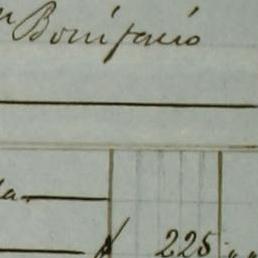 n Bonifacio
la
$ 225